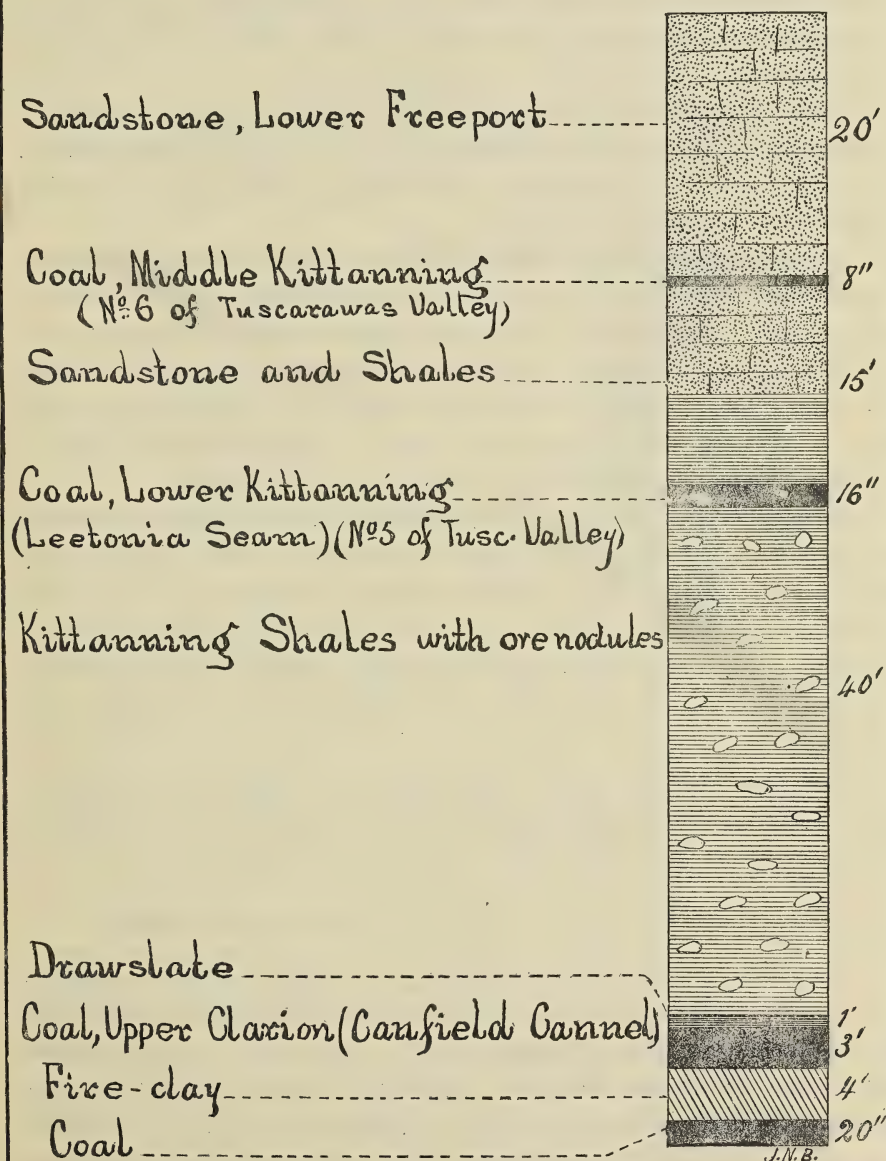 Sandstone, Lower Freeport 20'
Coal, Middle Kittanning 8"
(No. 6 of Tuscarawas Valley)
Sandstone and Shales 15'
Coal, Lower Kittanning 16"
(Leetonia Seam)(No 5 of Tusc. Valley)
Kittanning Shales with ore nodules
40'
Drawslate 1'
Coal, Upper Clarion (Canfield Cannel) 3'
Fire-clay 4'
Coal 20"
J.N.B.